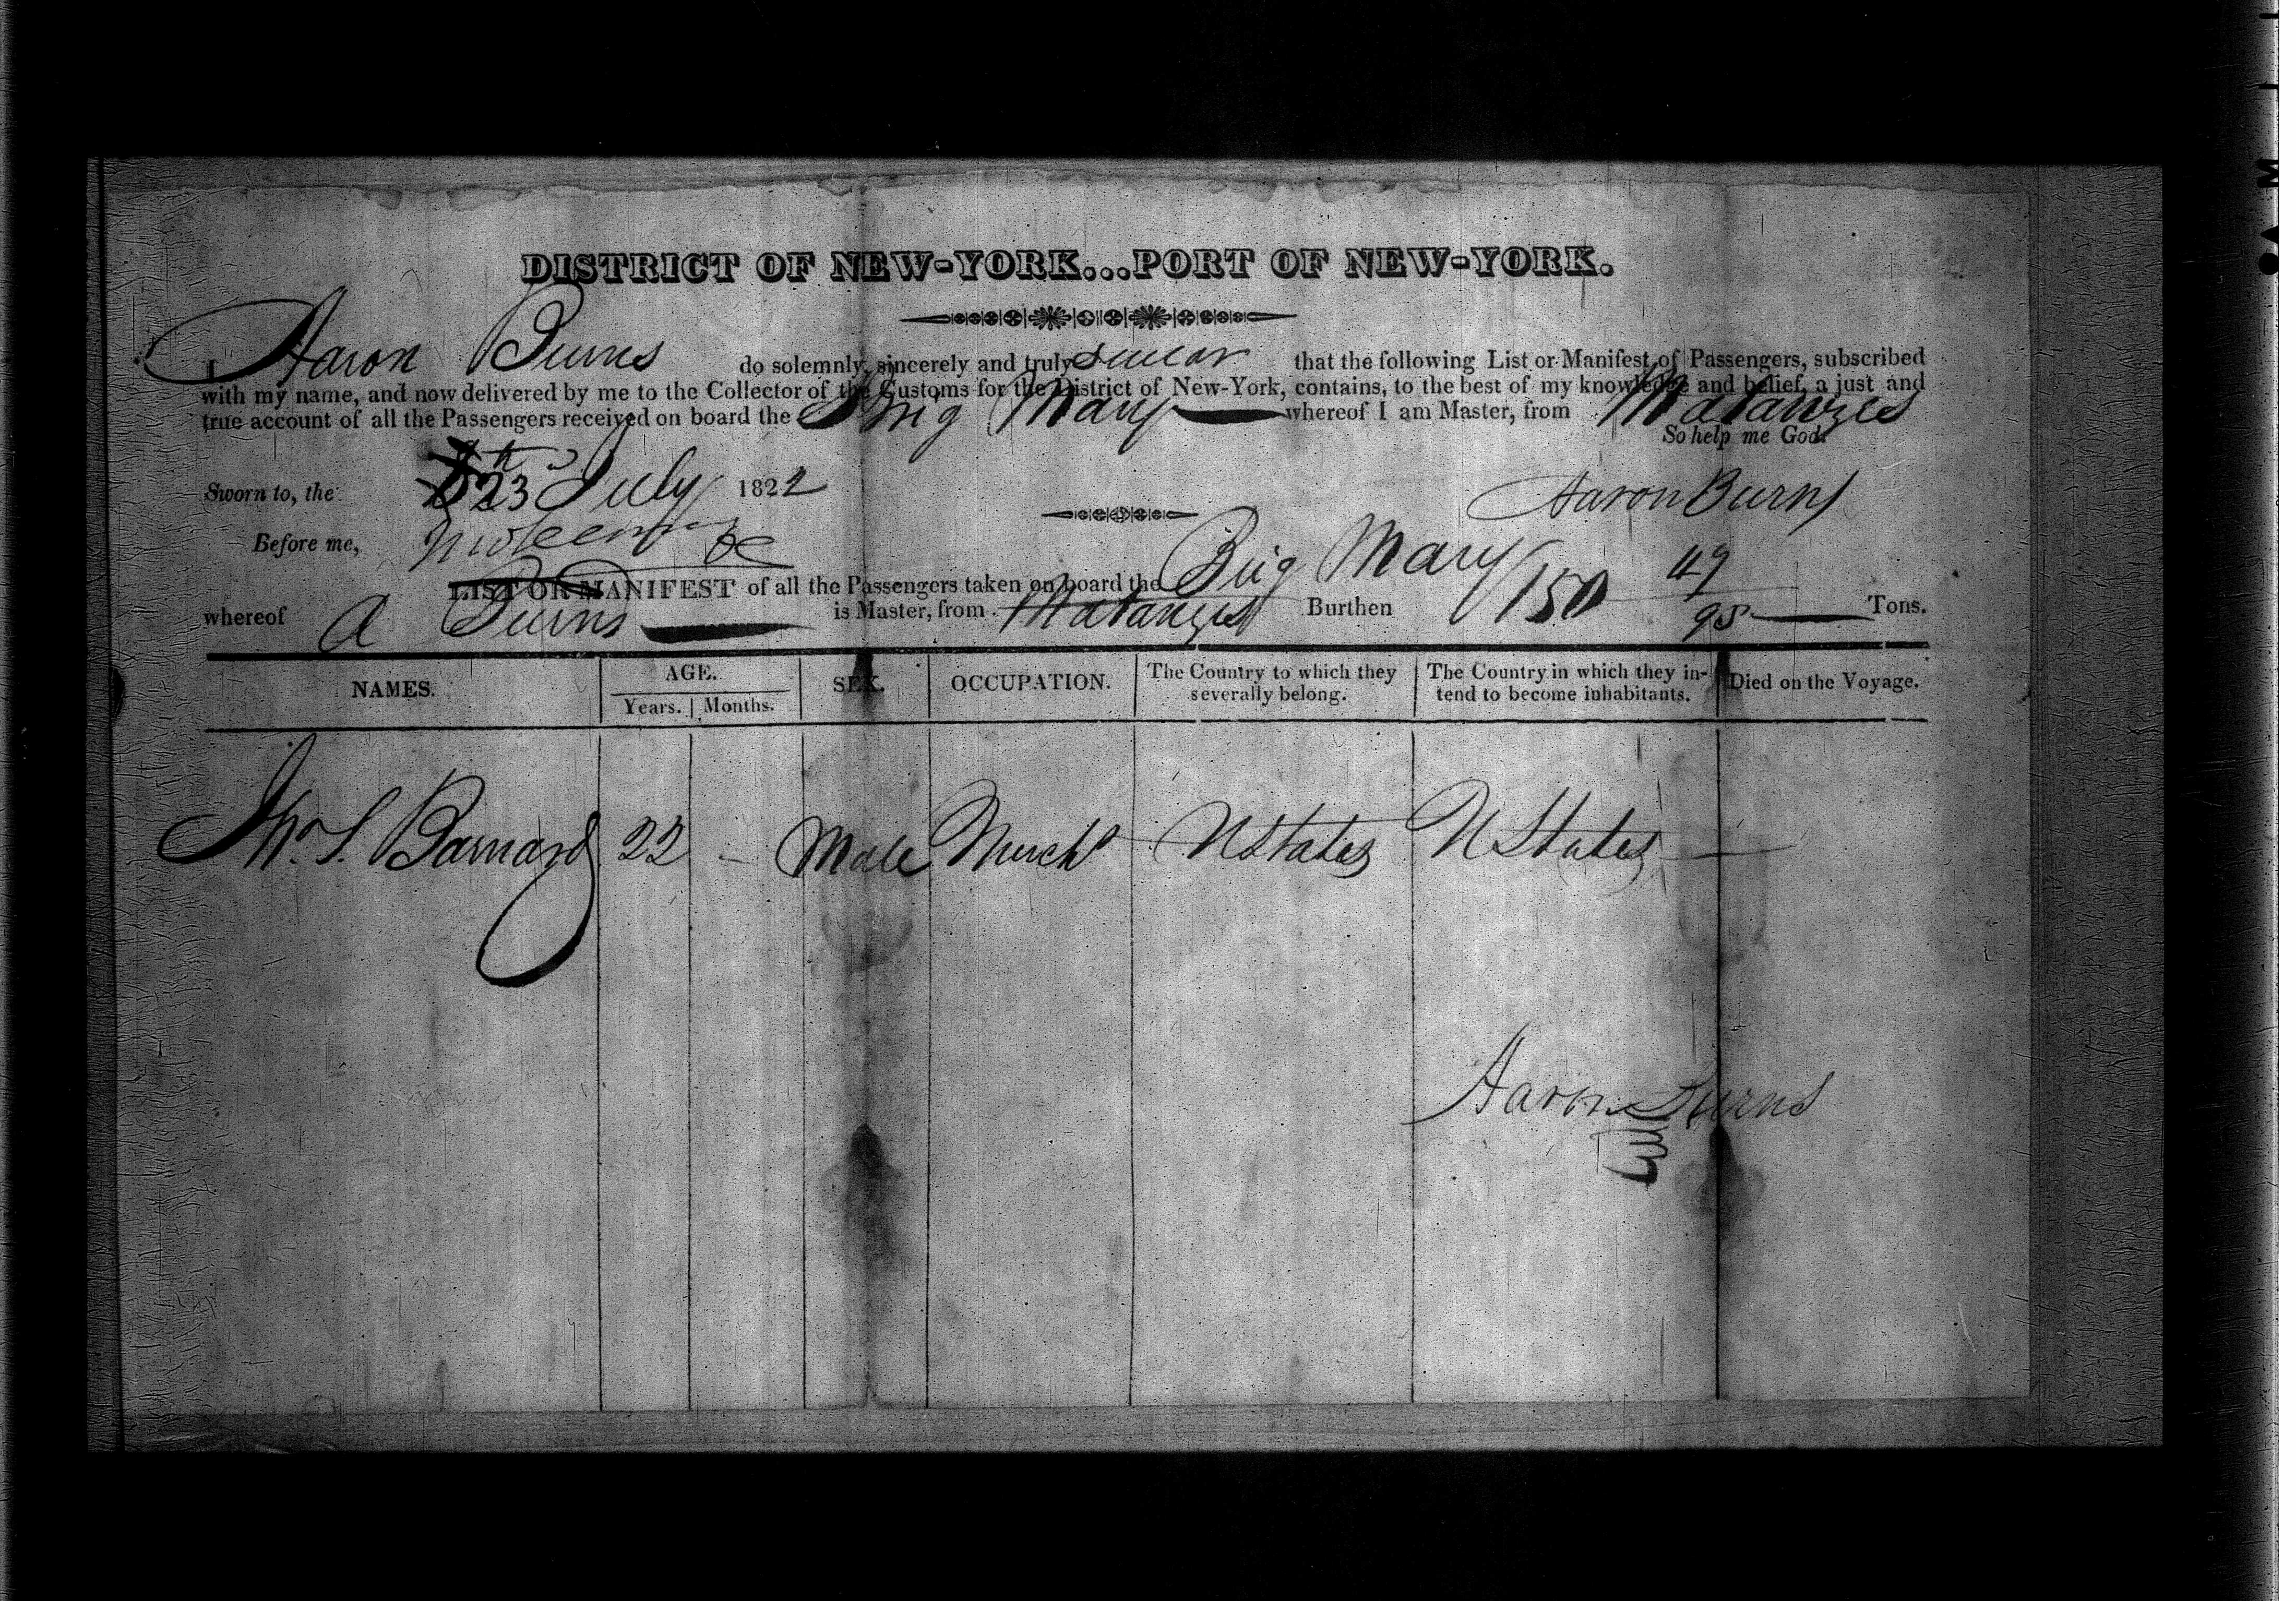 DISTRICT OF NEW-YORK...PORT OF NEW-YORK.
I Aaron Burns do solemnly, sincerely and truly swear that the following List or Manifest of Passengers, subscribed
with my name, and now delivered by me to the Collector of the Customs for the District of New-York, contains, to the best of my knowledge and belief, a just and
true account of all the Passengers received on board the Brig Mary whereof I am Master, from Matanzes
So help me God.
Sworn to, the 23 July 1822
Aaron Burns
Before me,
LIST OR MANIFEST of all the Passengers taken on board the Brig Mary
whereof A Burns is Master, from Matanzes Burthen 150 49/95 Tons.
NAMES. AGE. SEX. OCCUPATION. The Country to which they severally belong. The Country in which they intend to become inhabitants. Died on the Voyage.
Years. Months.
Jno. S. Barnard 22 - Male Mercht UStates UStates —
Aaron Burns